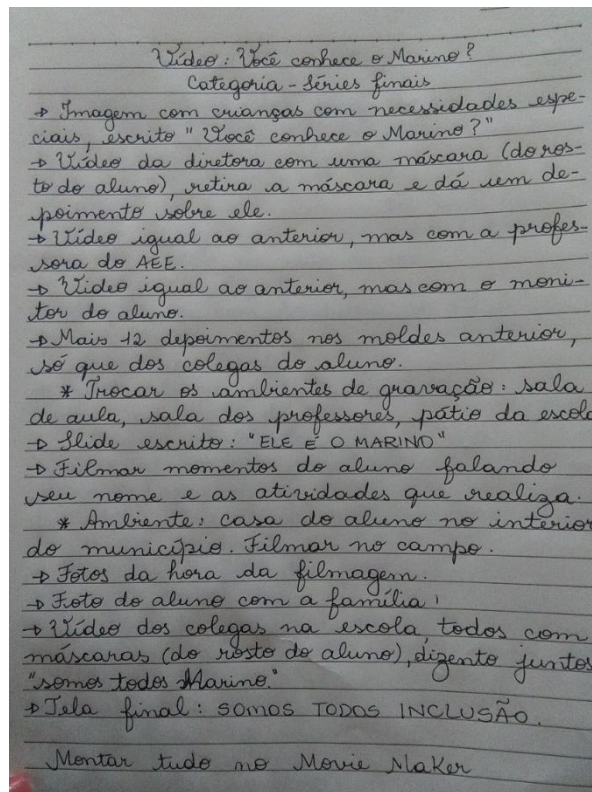 Vídeo: Você conhece o Marino?
Categoria - Séries finais
→ Imagem com crianças com necessidades espe-
ciais, escrito "Você conhece o Marino?"
→ Vídeo da diretora com uma máscara (do ros-
to do aluno), retira a máscara e dá um de-
poimento sobre ele.
→ Vídeo igual ao anterior, mas com a profes-
sora do AEE.
→ Vídeo igual ao anterior, mas com o moni-
tor do aluno.
→ Mais 12 depoimentos nos moldes anterior,
só que dos colegas do aluno.
* Trocar os ambientes de gravação: sala
de aula, sala dos professores, pátio da escola
→ Slide escrito: "ELE É O MARINO"
→ Filmar momentos do aluno falando
seu nome e as atividades que realiza.
* Ambiente: casa do aluno no interior
do município. Filmar no campo.
→ Fotos da hora da filmagem.
→ Foto do aluno com a família!
→ Vídeo dos colegas na escola, todos com
máscaras (do rosto do aluno), dizento juntos
"somos todos Marino."
→ Tela final: SOMOS TODOS INCLUSÃO.
Montar tudo no Movie Maker